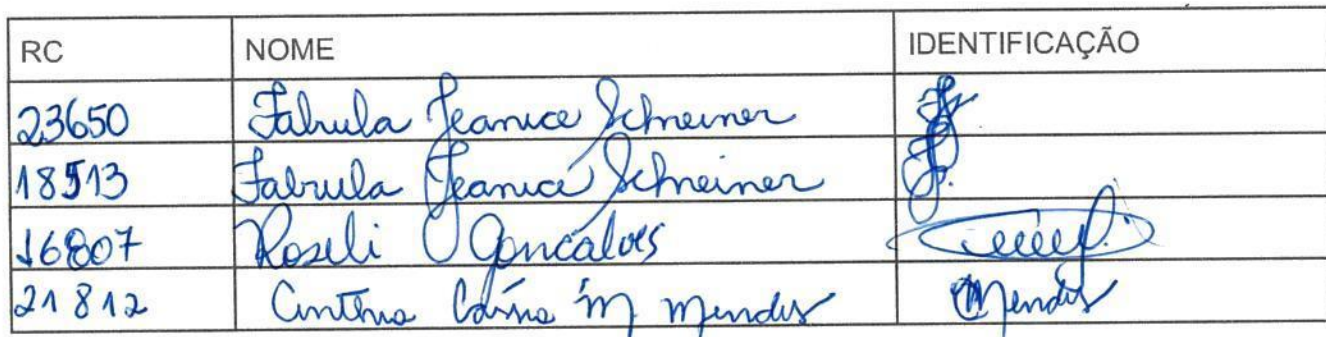 RC NOME IDENTIFICAÇÃO
23650 Fabrula Jeanice Schreiner
18513 Fabrula Jeanice Schreiner
16807 Roseli Goncalves
21812 M Mendes Mendes